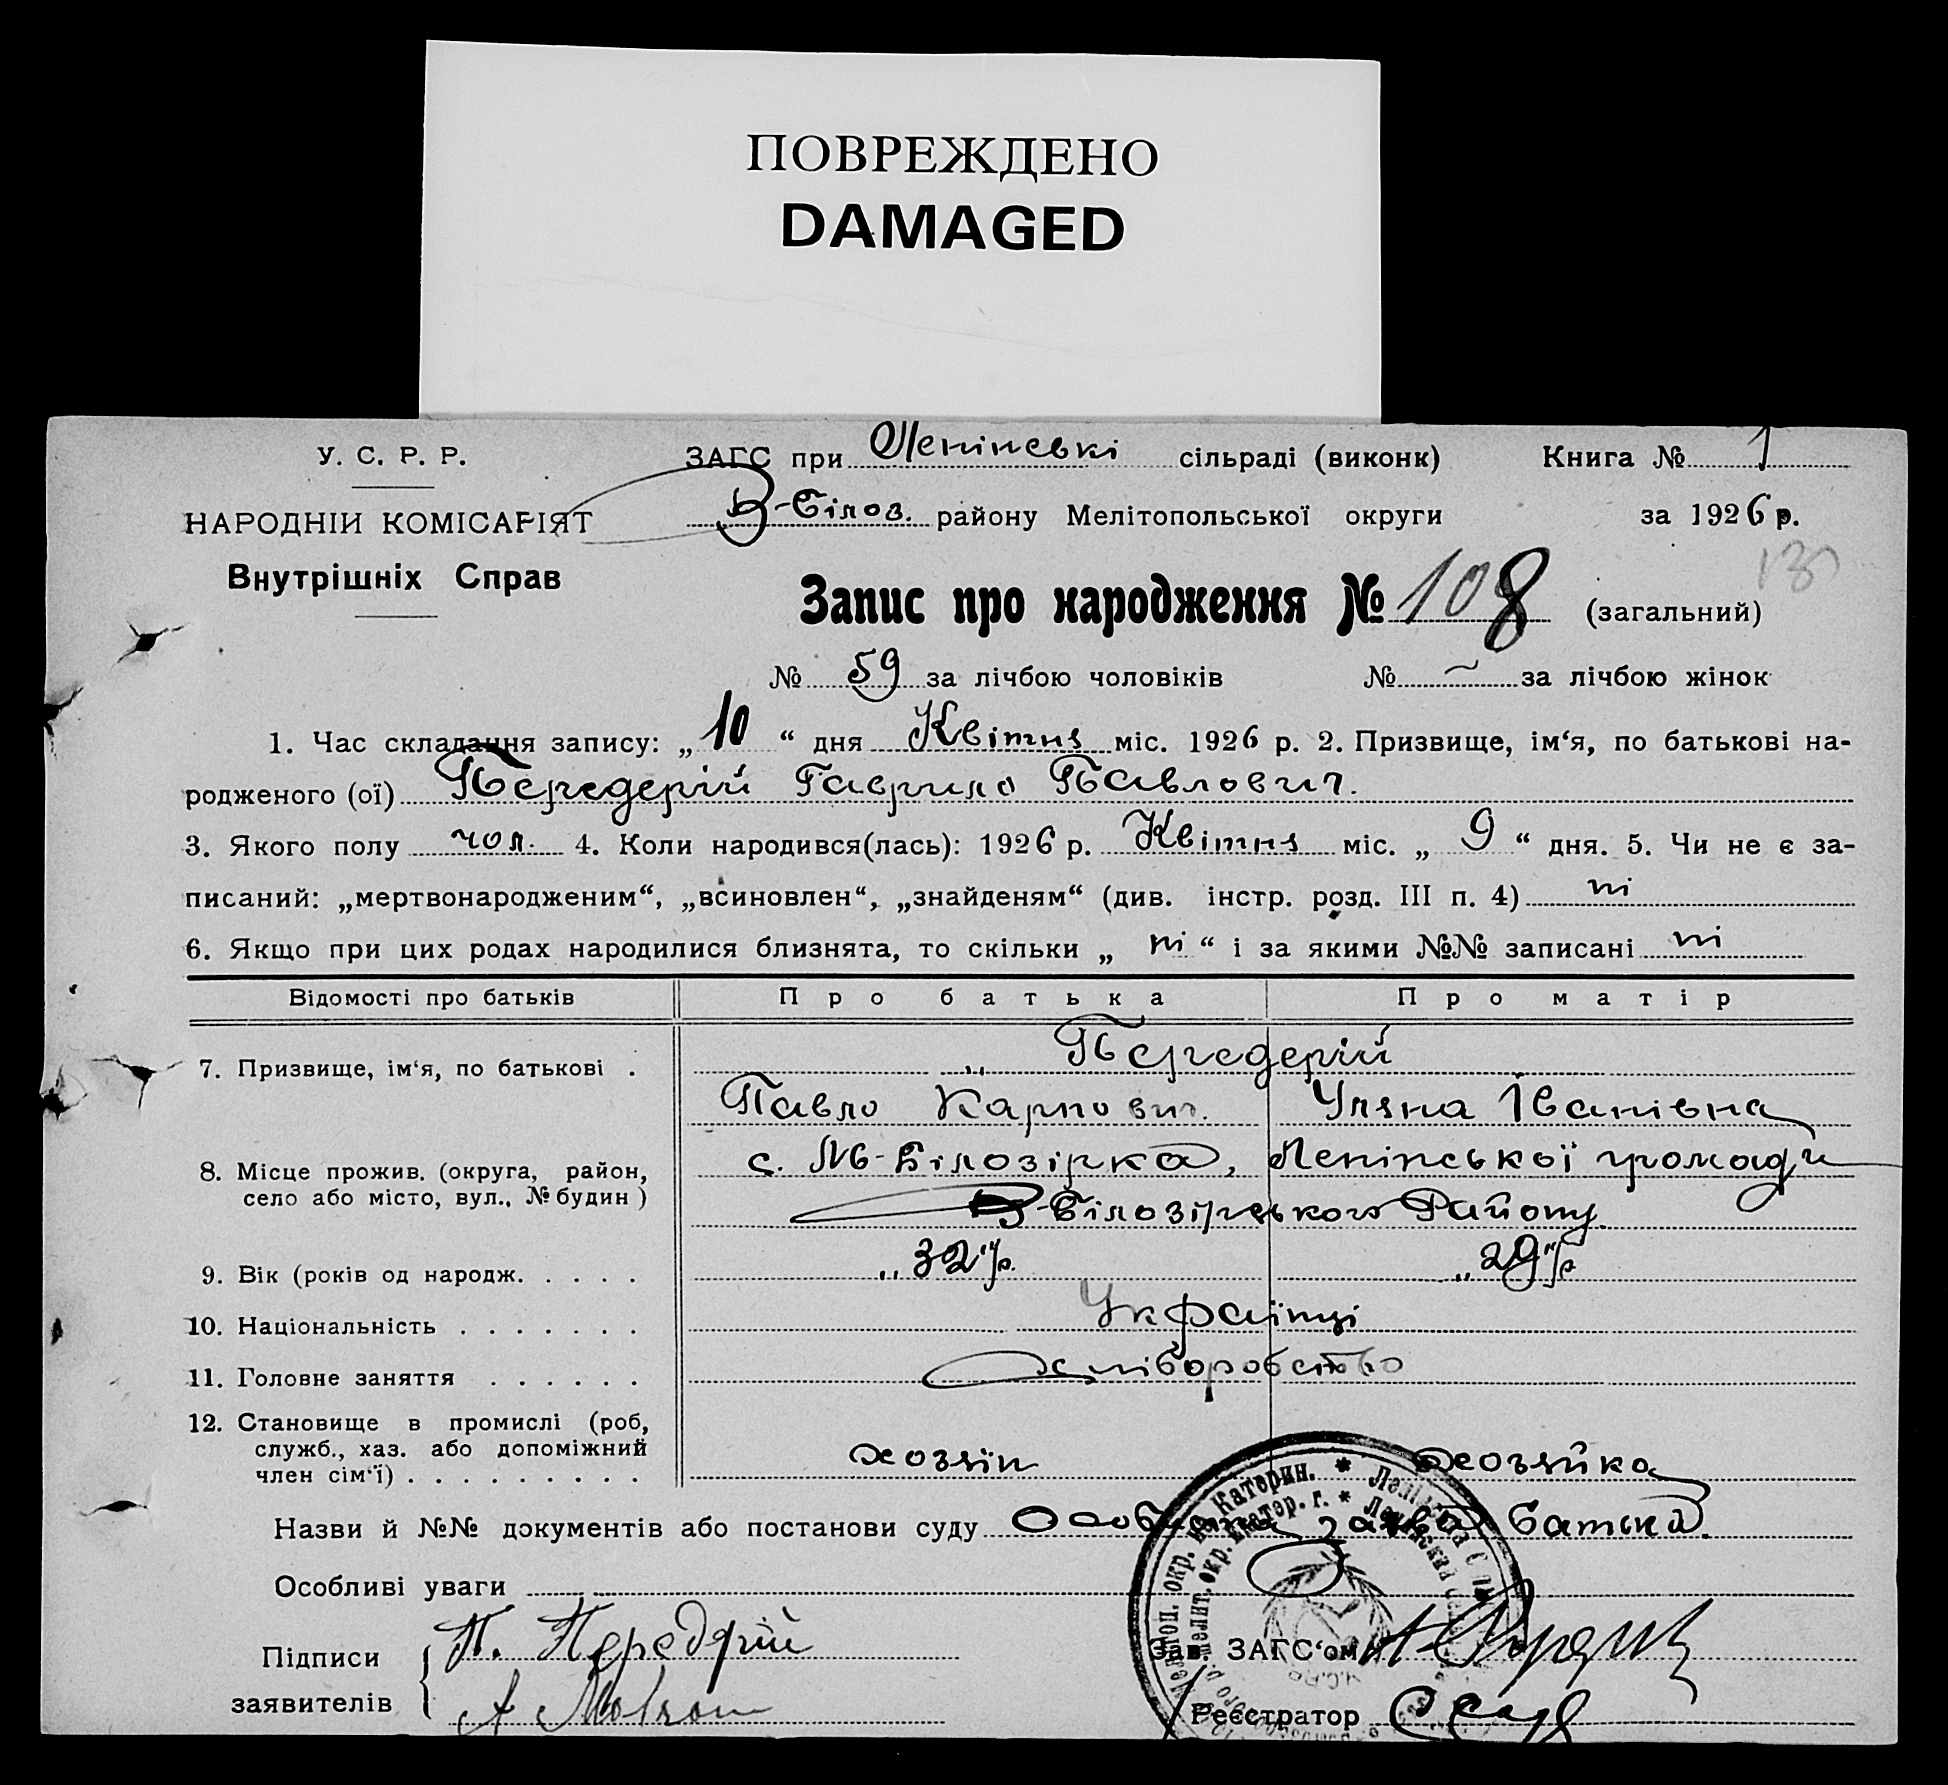 ПОВРЕЖДЕНО
DAMAGED
У. С. Р. Р.
ЗАГС при Ленінські сільраді (виконк) Книга № 1
НАРОДНІЙ КОМІСАРІЯТ
В-Білоз. району Мелітопольської округи за 1926 р.
Внутрішніх Справ
Запис про народження № 108 (загальний)
№ 59 за лічбою чоловіків № – за лічбою жінок
1. Час складання запису: „10“ дня Квітня міс. 1926 р. 2. Призвище, ім‘я, по батькові на-
родженого (ої) Передерій Гаврило Павлович.
3. Якого полу чол. 4. Коли народився(лась): 1926 р. Квітня міс. „9“ дня. 5. Чи не є за-
писаний: „мертвонародженим“, „всиновлен“, „знайденям“ (див. інстр. розд. III п. 4) ні
6. Якщо при цих родах народилися близнята, то скільки „ні“ і за якими №№ записані ні
Відомості про батьків Про батька Про матір
7. Призвище, ім‘я, по батькові . Передерій
Павло Карпович. Уляна Іванівна
8. Місце прожив. (округа, район, село або місто, вул., № будин) с. М-Білозірка, Ленінської громади
В-Білозірського Району.
9. Вік (років од народж. . . . . „32“ р. „29“ р
10. Національність . . . . . . . Українці
11. Головне заняття . . . . . . хліборобство
12. Становище в промислі (роб,
служб., хаз. або допоміжний
член сім‘ї) . . . . . . . . . хозяїн хозяйка
Назви й №№ документів або постанови суду Особиста заява батька.
Особливі уваги
Підписи П. Передрій
Зав. ЗАГС‘ом
заявителів
Реєстратор